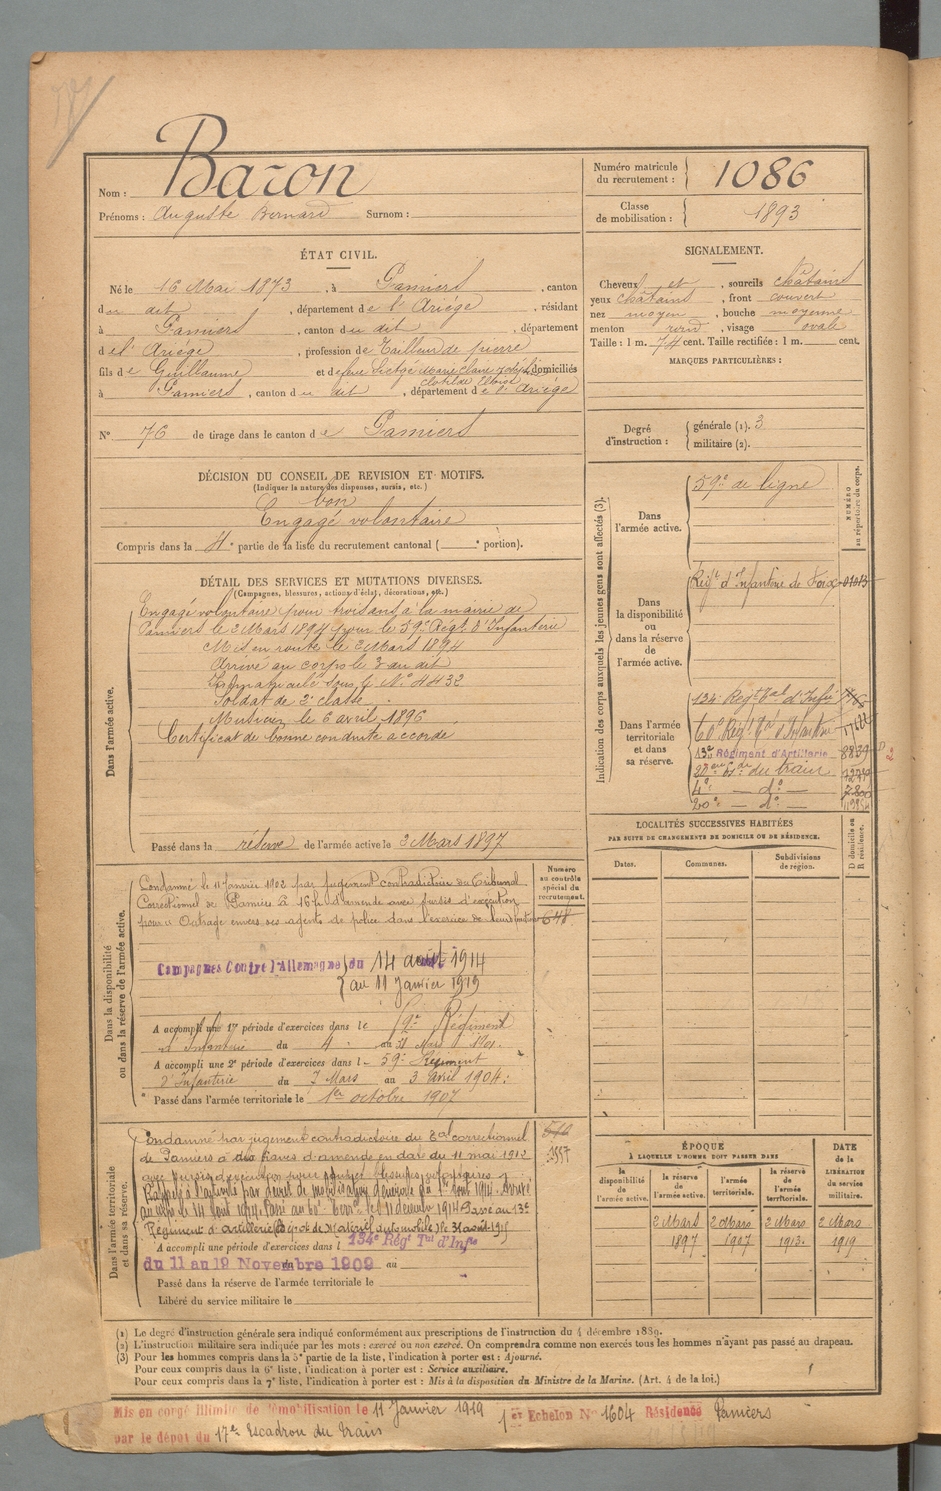 Baron
Nom :
Prénoms : Auguste Bernard Surnom :
Numéro matricule
du recrutement : 1086
Classe
de mobilisation : 1893
ÉTAT CIVIL.
Né le 16 Mai 1873, à Pamiers, canton
du dit, département de l'Ariège, résidant
à Pamiers, canton du dit, département
de l'Ariège, profession de Tailleur de pierre
fils de Guillaume et de feue Marie Claire domiciliés
à Pamiers, canton du dit, département de l'Ariège
N° 76 de tirage dans le canton de Pamiers
SIGNALEMENT.
Cheveux et, sourcils châtains
yeux châtains, front couvert
nez moyen, bouche moyenne
menton rond, visage ovale
Taille : 1 m. 74 cent. Taille rectifiée : 1 m. cent.
MARQUES PARTICULIÈRES :
Degré
d'instruction :
générale (1). 3
militaire (2).
DÉCISION DU CONSEIL DE REVISION ET MOTIFS.
(Indiquer la nature des dispenses, sursis, etc.)
bon
Engagé volontaire
Compris dans la 4e partie de la liste du recrutement cantonal ( e portion).
DÉTAIL DES SERVICES ET MUTATIONS DIVERSES.
(Campagnes, blessures, actions d'éclat, décorations, etc.)
Dans l'armée active.
Engagé volontaire pour trois ans à la mairie de
Pamiers le 2 Mars 1894 pour le 59e Régt d'Infanterie
Mis en route le 2 Mars 1894
Arrivé au corps le 3 au dit
Immatriculé sous le N° 4432
Soldat de 2e classe
Musicien le 6 avril 1896
Certificat de bonne conduite accordé
Passé dans la réserve de l'armée active le 2 Mars 1897
Indication des corps auxquels les jeunes gens sont affectés (3).
NUMÉRO
au répertoire du corps.
Dans
l'armée active.
59e de ligne
Dans
la disponibilité
ou
dans la réserve
de
l'armée active.
Régt d'Infanterie de Foix
Dans l'armée
territoriale
et dans
sa réserve.
134e Régt Tal d'Infie
60e Régt Tal d'Infanterie
13e Régiment d'Artillerie 8839
20eme Esc. du train
4e — do —
20e — do —
LOCALITÉS SUCCESSIVES HABITÉES
PAR SUITE DE CHANGEMENTS DE DOMICILE OU DE RÉSIDENCE.
Dates. Communes. Subdivisions
de région.
D domicile ou
R résidence.
Dans la disponibilité
ou dans la réserve de l'armée active.
Numéro
au contrôle
spécial du
recrutement.
648
Condamné le 11 Janvier 1902 par jugement contradictoire du Tribunal
Correctionnel de Pamiers à 16 f d'amende avec sursis d'exécution
pour Outrage envers des agents de police dans l'exercice de leurs fonctions
Campagnes Contre l'Allemagne du 14 août 1914
au 11 Janvier 1919
A accompli une 1re période d'exercices dans le 59e Régiment
d'Infanterie du 4 au 31 Mars 1901.
A accompli une 2e période d'exercices dans l 59e Régiment
d'Infanterie du 7 Mars au 3 avril 1904.
Passé dans l'armée territoriale le 1er octobre 1907
Dans l'armée territoriale
et dans sa réserve.
Condamné par jugement contradictoire du Tal correctionnel
de Pamiers à francs d'amende en date du 11 mai 1912
avec sursis d'exécution pour
Rappelé à l'activité par décret de mobilisation générale du 1er août 1914. Arrivé
au corps le 14 août 1914. Passé au 60e Terral le 11 décembre 1914. Passé au 13e
Régiment d'artillerie le 31 août 1915
A accompli une période d'exercices dans l 134e Régt Tal d'Infie
du 11 au 19 Novembre 1909 au
Passé dans la réserve de l'armée territoriale le
Libéré du service militaire le
ÉPOQUE
À LAQUELLE L'HOMME DOIT PASSER DANS
DATE
de la
LIBÉRATION
du service
militaire.
la
disponibilité
de l'armée active.
la réserve
de
l'armée active.
l'armée
territoriale.
la réserve
de
l'armée
territoriale.
2 Mars 2 Mars 2 Mars 2 Mars
1897 1907 1913. 1919
(1) Le degré d'instruction générale sera indiqué conformément aux prescriptions de l'instruction du 4 décembre 1889.
(2) L'instruction militaire sera indiquée par les mots : exercé ou non exercé. On comprendra comme non exercés tous les hommes n'ayant pas passé au drapeau.
(3) Pour les hommes compris dans la 5e partie de la liste, l'indication à porter est : Ajourné.
Pour ceux compris dans la 6e liste, l'indication à porter est : Service auxiliaire.
Pour ceux compris dans la 7e liste, l'indication à porter est : Mis à la disposition du Ministre de la Marine. (Art. 4 de la loi.)
Mis en congé illimité de démobilisation le 11 Janvier 1919 1er Echelon N° 1604 Résidence Pamiers
par le dépôt du 17e Escadron du Train